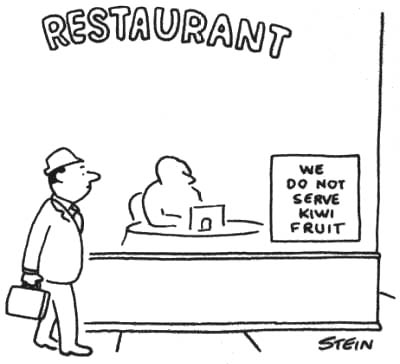 RESTAURANT
WE
DO NOT
SERVE
KIWI
FRUIT
STEIN